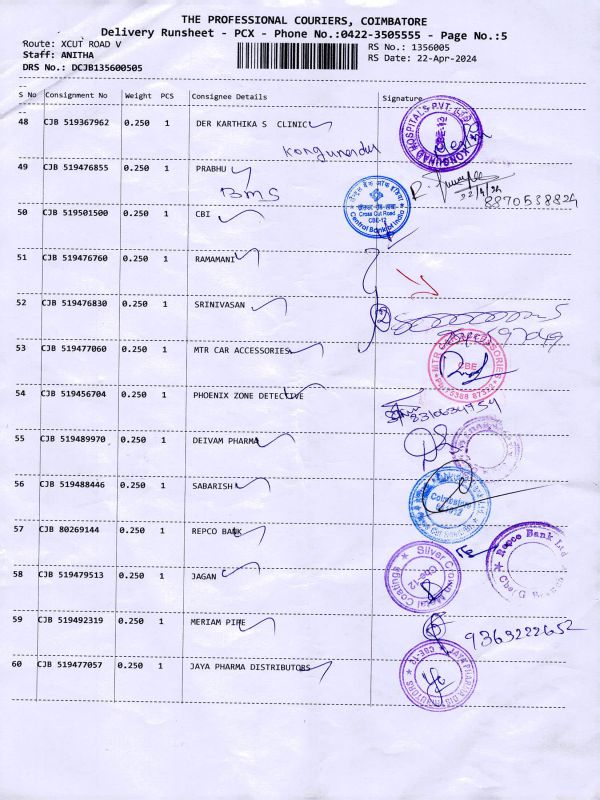 THE PROFESSIONAL COURIERS, COIMBATORE
Delivery Runsheet - PCX - Phone No.:0422-3505555 - Page No.:5
Route: XCUT ROAD V
RS No.: 1356005
Staff: ANITHA
RS Date: 22-Apr-2024
DRS No.: DCJB135600505
S No Consignment No Weight PCS Consignee Details Signature
48 CJB 519367962 0.250 1 DER KARTHIKA S CLINIC
KONGUNAD HOSPITALS PVT. LTD. CBE-12
49 CJB 519476855 0.250 1 PRABHU
BMS
22/4/24
8870538824
50 CJB 519501500 0.250 1 CBI
Cross Cut Road
CBE-12
Central Bank of India
51 CJB 519476760 0.250 1 RAMAMANI
52 CJB 519476830 0.250 1 SRINIVASAN
53 CJB 519477060 0.250 1 MTR CAR ACCESSORIES
MTR CAR ACCESSORIES
CBE
54 CJB 519456704 0.250 1 PHOENIX ZONE DETECTIVE
55 CJB 519489970 0.250 1 DEIVAM PHARMA
56 CJB 519488446 0.250 1 SABARISH
Coimbatore
57 CJB 80269144 0.250 1 REPCO BANK
Repco Bank Ltd
58 CJB 519479513 0.250 1 JAGAN
Silver Crown Metal Coatings
Cbe-12
59 CJB 519492319 0.250 1 MERIAM PIPE
9363222652
60 CJB 519477057 0.250 1 JAYA PHARMA DISTRIBUTORS
JAYA PHARMA DISTRIBUTORS CBE-12